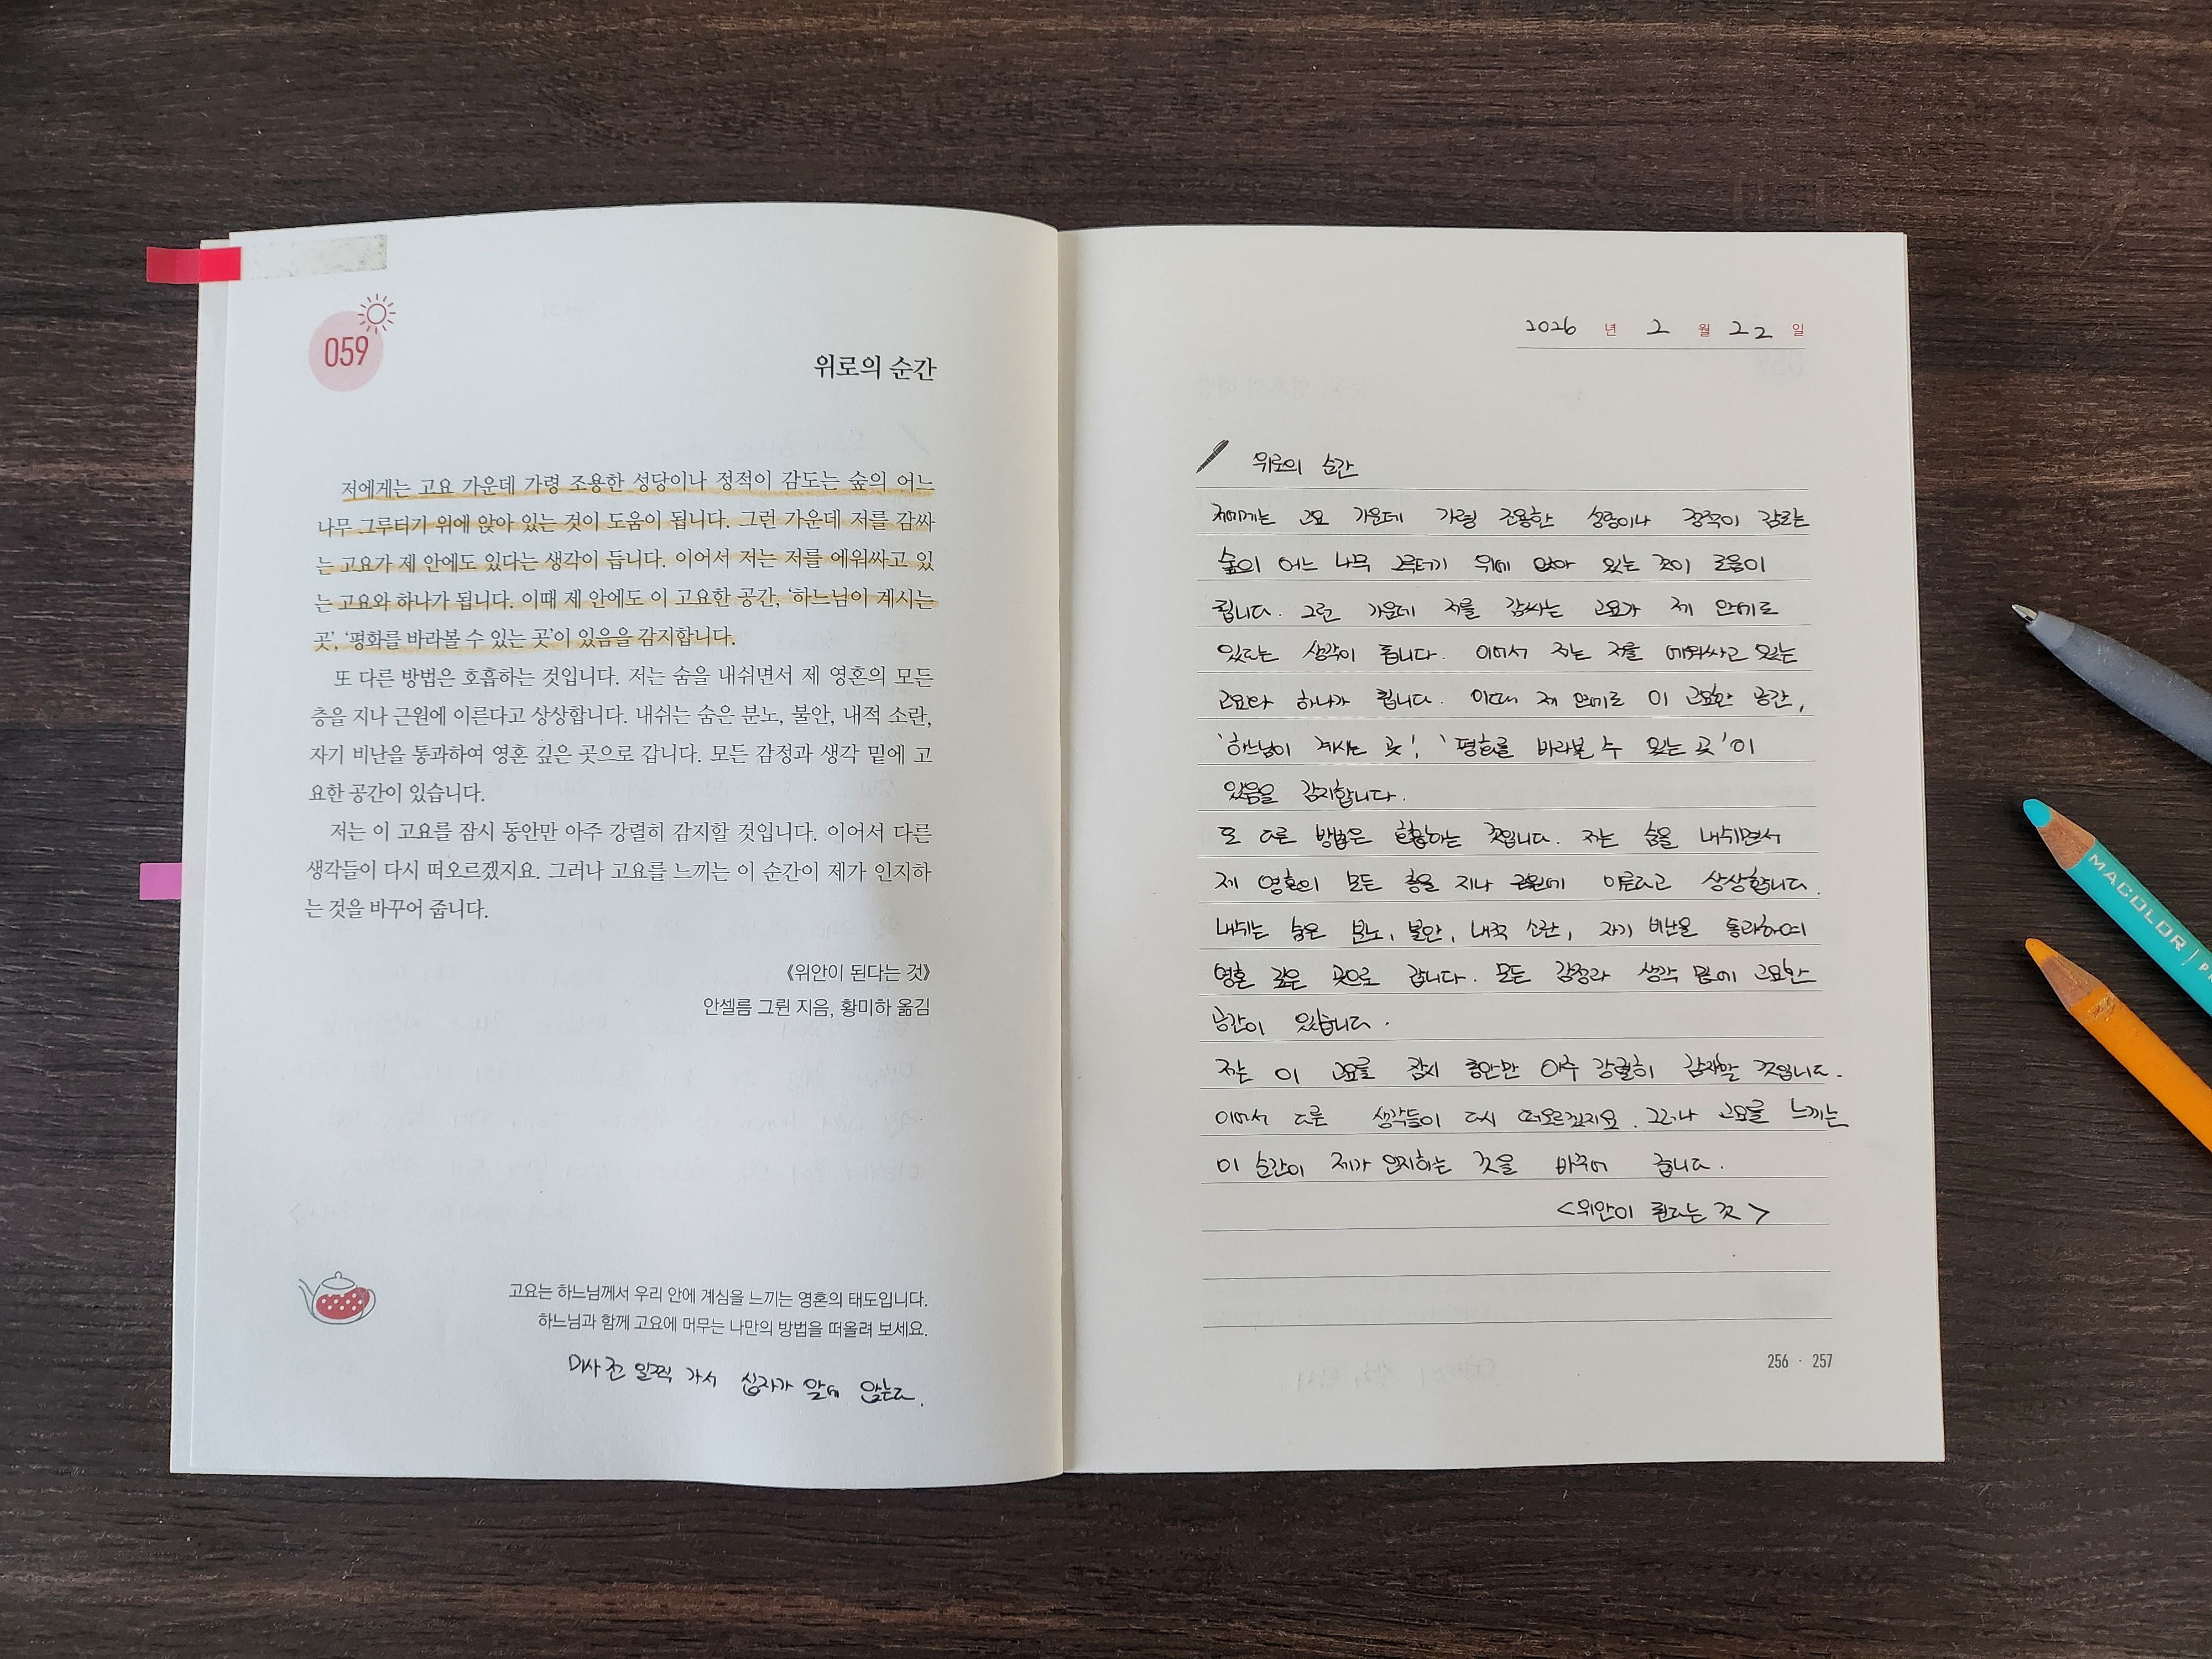 059
위로의 순간
저에게는 고요 가운데 가령 조용한 성당이나 정적이 감도는 숲의 어느
나무 그루터기 위에 앉아 있는 것이 도움이 됩니다. 그런 가운데 저를 감싸
는 고요가 제 안에도 있다는 생각이 듭니다. 이어서 저는 저를 에워싸고 있
는 고요와 하나가 됩니다. 이때 제 안에도 이 고요한 공간, ‘하느님이 계시는
곳’, ‘평화를 바라볼 수 있는 곳’이 있음을 감지합니다.
또 다른 방법은 호흡하는 것입니다. 저는 숨을 내쉬면서 제 영혼의 모든
층을 지나 근원에 이른다고 상상합니다. 내쉬는 숨은 분노, 불안, 내적 소란,
자기 비난을 통과하여 영혼 깊은 곳으로 갑니다. 모든 감정과 생각 밑에 고
요한 공간이 있습니다.
저는 이 고요를 잠시 동안만 아주 강렬히 감지할 것입니다. 이어서 다른
생각들이 다시 떠오르겠지요. 그러나 고요를 느끼는 이 순간이 제가 인지하
는 것을 바꾸어 줍니다.
《위안이 된다는 것》
안셀름 그륀 지음, 황미하 옮김
고요는 하느님께서 우리 안에 계심을 느끼는 영혼의 태도입니다.
하느님과 함께 고요에 머무는 나만의 방법을 떠올려 보세요.
미사 전 일찍 가서 십자가 앞에 앉는다.
2026 년 2 월 22 일
위로의 순간
저에게는 고요 가운데 가령 조용한 성당이나 정적이 감도는
숲의 어느 나무 그루터기 위에 앉아 있는 것이 도움이
됩니다. 그런 가운데 저를 감싸는 고요가 제 안에도
있다는 생각이 듭니다. 이어서 저는 저를 에워싸고 있는
고요와 하나가 됩니다. 이때 제 안에도 이 고요한 공간,
'하느님이 계시는 곳', '평화를 바라볼 수 있는 곳'이
있음을 감지합니다.
또 다른 방법은 호흡하는 것입니다. 저는 숨을 내쉬면서
제 영혼의 모든 층을 지나 근원에 이른다고 상상합니다.
내쉬는 숨은 분노, 불안, 내적 소란, 자기 비난을 통과하여
영혼 깊은 곳으로 갑니다. 모든 감정과 생각 밑에 고요한
공간이 있습니다.
저는 이 고요를 잠시 동안만 아주 강렬히 감지할 것입니다.
이어서 다른 생각들이 다시 떠오르겠지요. 그러나 고요를 느끼는
이 순간이 제가 인지하는 것을 바꾸어 줍니다.
<위안이 된다는 것>
256 · 257
MACOLOR